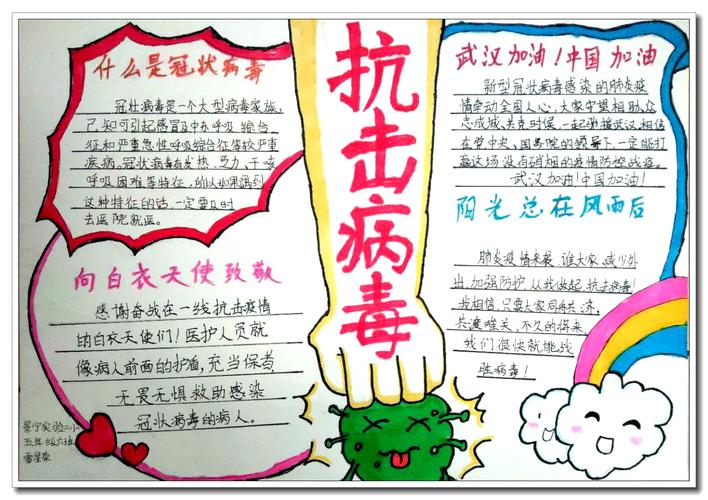 什么是冠状病毒
冠状病毒是一个大型病毒家族,
已知可引起感冒及中东呼吸综合
征和严重急性呼吸综合征等较严重
疾病。冠状病毒有发热、乏力、干咳
呼吸困难等特征,所以如果遇到
这种特征的话,一定要及时
去医院就医。
向白衣天使致敬
感谢奋战在一线抗击疫情
的白衣天使们!医护人员就
像病人前面的护盾,充当保者
无畏无惧救助感染
冠状病毒的病人。
景宁实验二小
五年级六班
雷星
抗击病毒
武汉加油!中国加油
新型冠状病毒感染的肺炎疫
情牵动全国人心,大家守望相助,众
志成城、共克时候,一起驰援武汉,相信
在党中央、国务院的领导下,一定能打
赢这场没有硝烟的疫情防控战疫。
武汉加油!中国加油!
阳光总在风雨后
肺炎疫情来袭,谁大家,减少外
出,加强防护,从我做起,抗击病毒!
我相信,只要大家同舟共济,
共渡难关,不久的将来,
我们很快就能战
胜病毒!